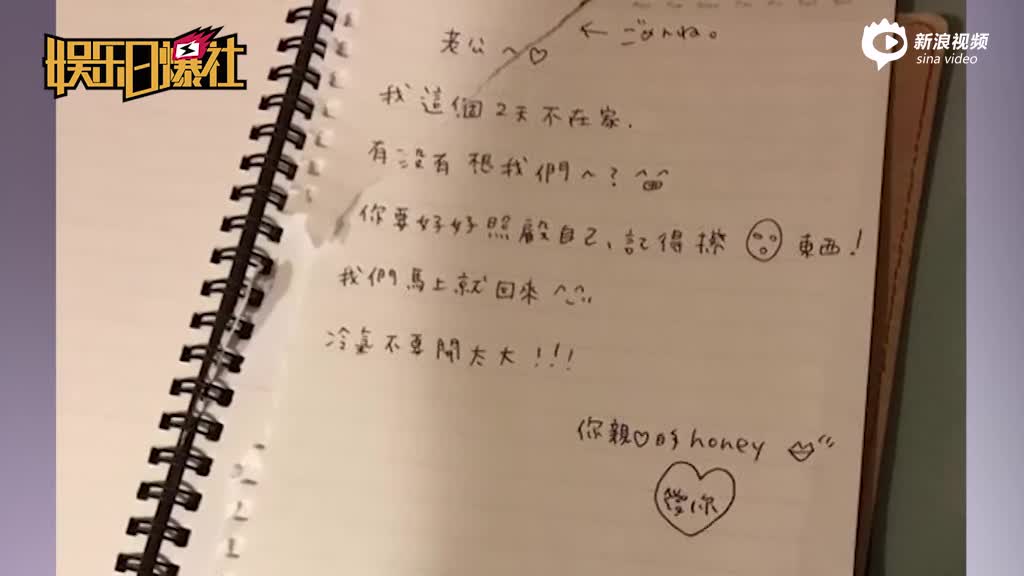 娱乐日爆社
新浪视频
sina video
老公～♡ ← ごめんね。
我這個2天不在家.
有沒有想我們～?
你要好好照顧自己、記得擦 東西!
我們馬上就回來 ^_^
冷氣不要開太大!!!
你親♡的honey
愛你